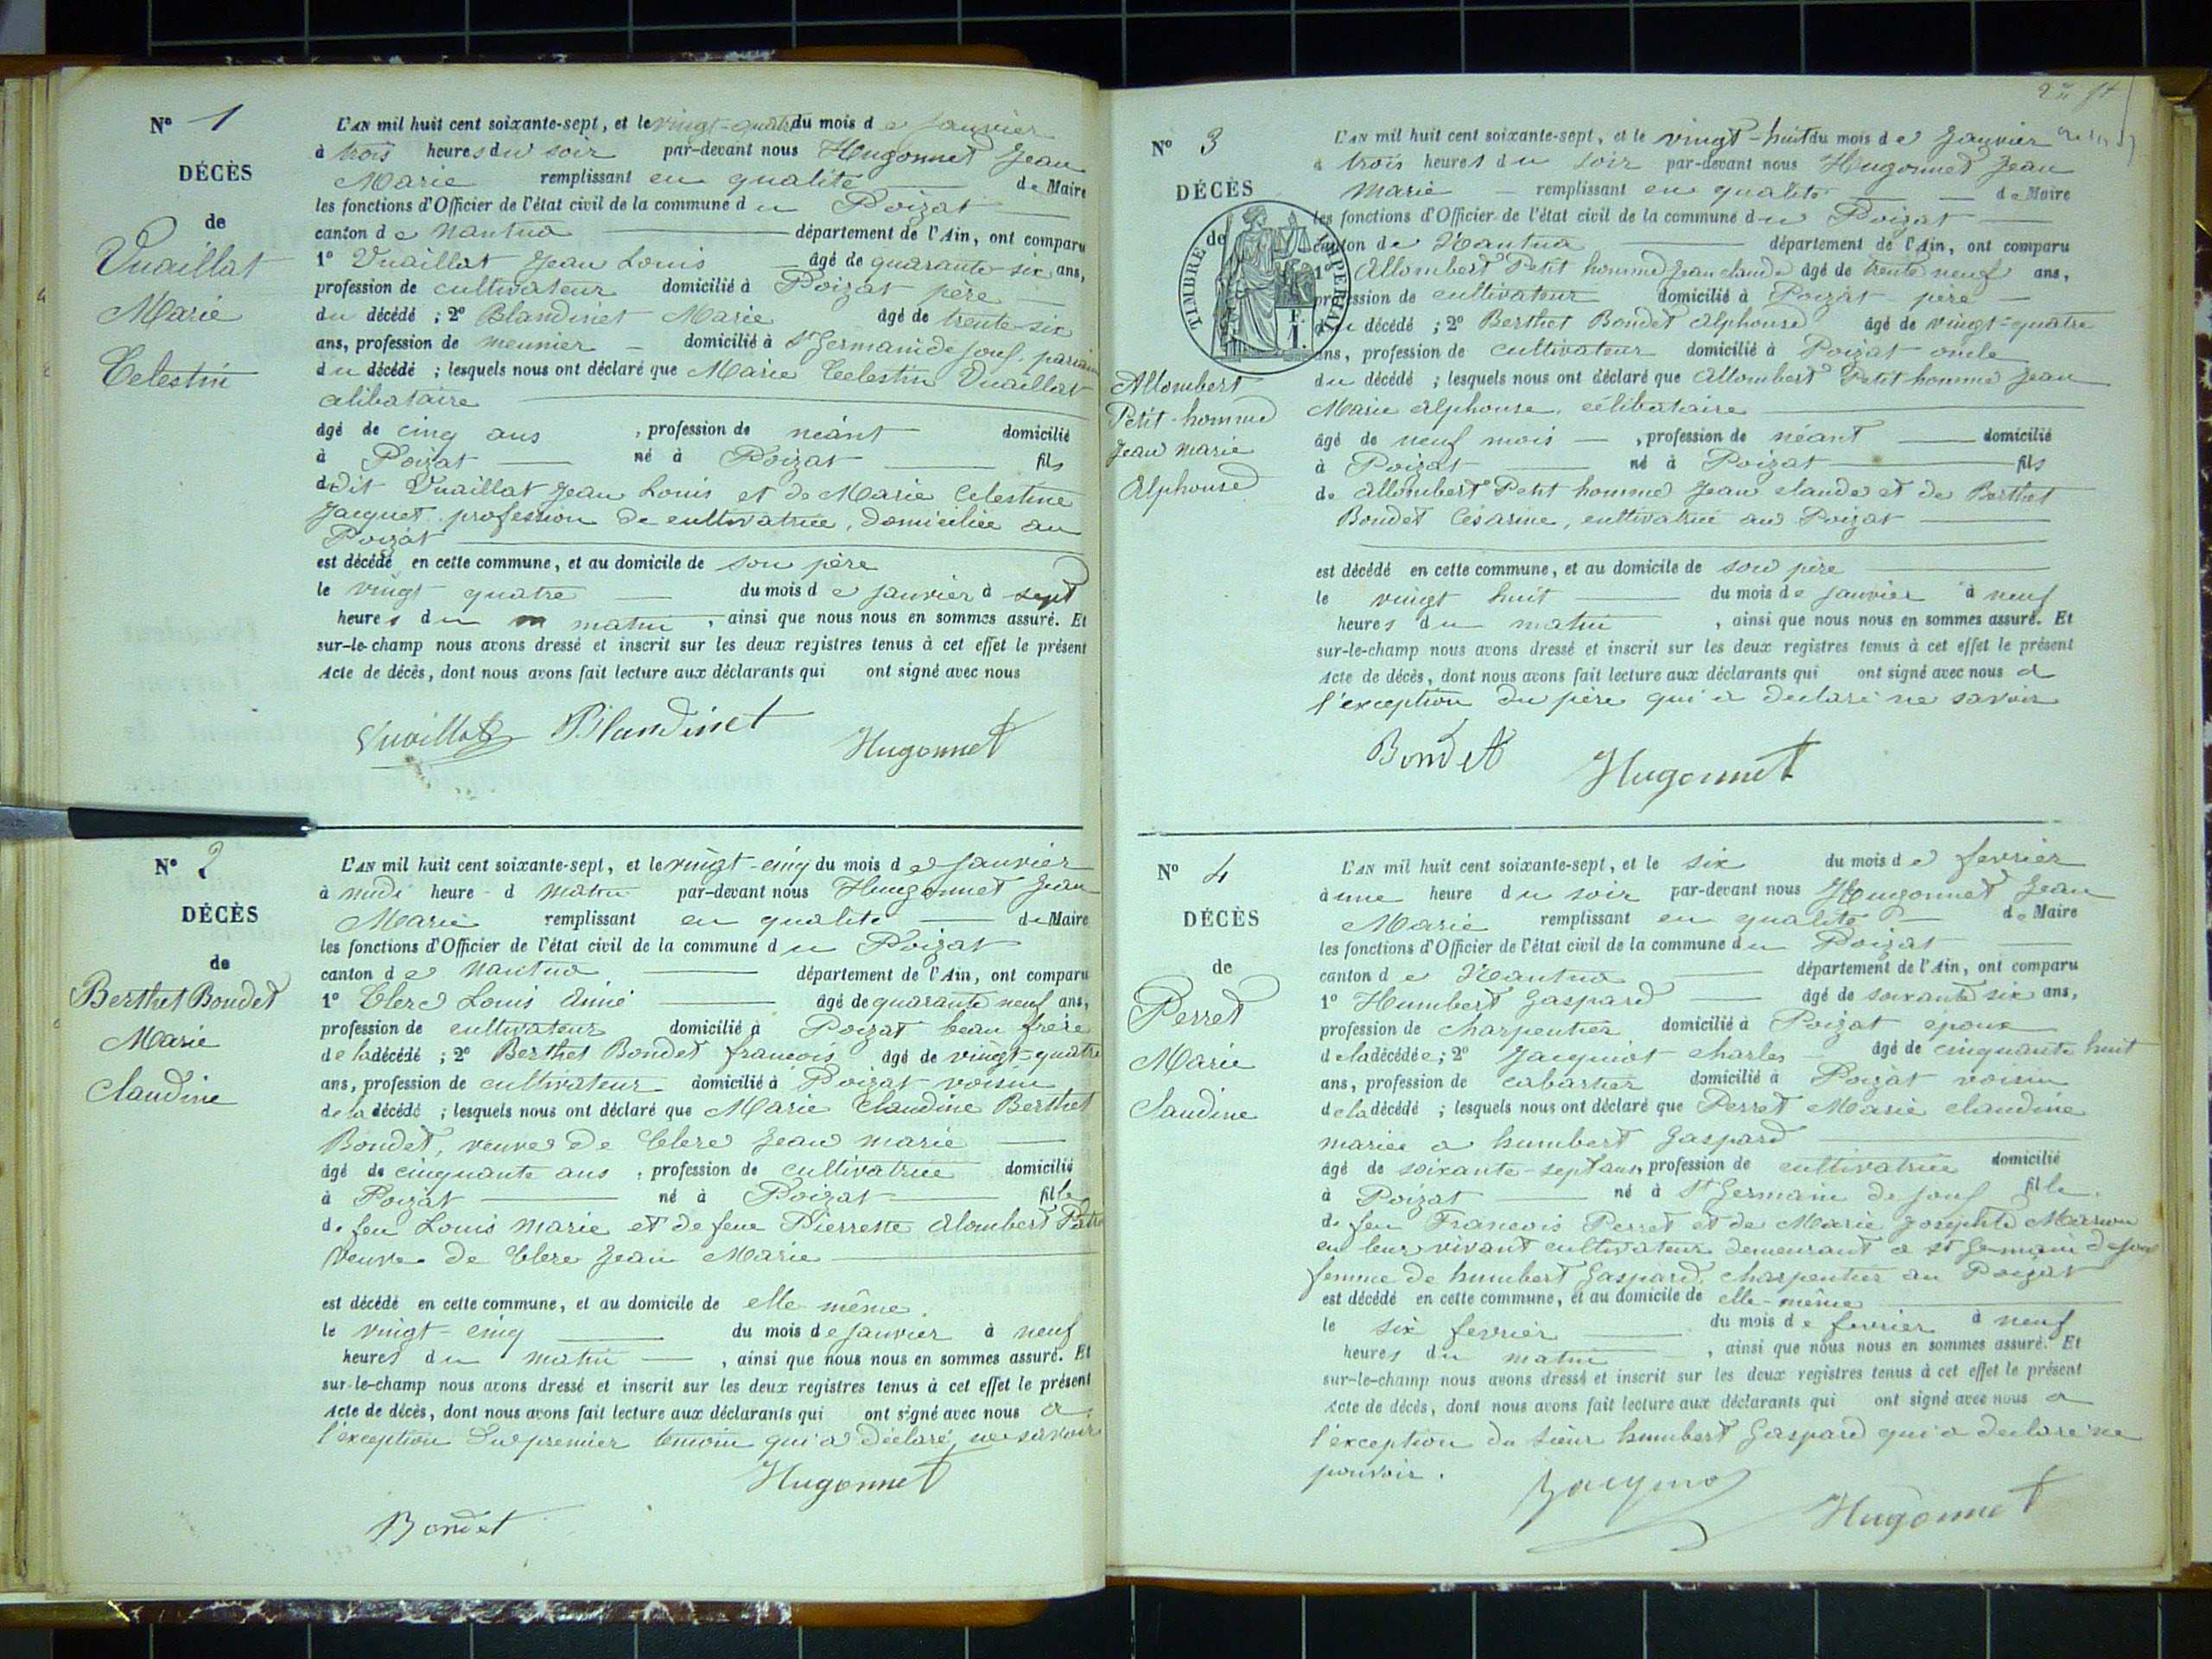 N° 1
DÉCÈS
de
Vuaillat
Marie
Celestin
L'AN mil huit cent soixante-sept, et le vingt-quatre du mois de Janvier
à trois heures du soir par-devant nous Hugonnet Jean
Marie remplissant en qualité de Maire
les fonctions d'Officier de l'état civil de la commune du Poizat
canton de Nantua département de l'Ain, ont comparu
1° Vuaillat Jean Louis âgé de quarante-six ans,
profession de cultivateur domicilié à Poizat père
du décédé ; 2° Blandinet Marie âgé de trente-six
ans, profession de meunier domicilié à St Germain de Joux parrain
du décédé ; lesquels nous ont déclaré que Marie Celestin Vuaillat
celibataire
âgé de cinq ans , profession de néant domicilié
à Poizat né à Poizat fils
dudit Vuaillat Jean Louis et de Marie Celestine
Jacquet profession de cultivatrice, domiciliée au
Poizat
est décédé en cette commune, et au domicile de son père
le vingt quatre du mois de janvier à sept
heures du matin , ainsi que nous nous en sommes assuré. Et
sur-le-champ nous avons dressé et inscrit sur les deux registres tenus à cet effet le présent
Acte de décès, dont nous avons fait lecture aux déclarants qui ont signé avec nous
Vuaillat Blandinet
Hugonnet
N° 2
DÉCÈS
de
Berthet Bondet
Marie
Claudine
L'AN mil huit cent soixante-sept, et le vingt-cinq du mois de Janvier
à midi heure d matin par-devant nous Hugonnet Jean
Marie remplissant en qualité de Maire
les fonctions d'Officier de l'état civil de la commune du Poizat
canton de Nantua département de l'Ain, ont comparu
1° Clerc Louis Aimé âgé de quarante neuf ans,
profession de cultivateur domicilié à Poizat beau frère
de la décédé ; 2° Berthet Bondet francois âgé de vingt-quatre
ans, profession de cultivateur domicilié à Poizat voisin
de la décédé ; lesquels nous ont déclaré que Marie Claudine Berthet
Bondet, veuve de Clerc Jean Marie
âgé de cinquante ans , profession de cultivatrice domicilié
à Poizat né à Poizat fille
de feu Louis Marie et de feue Pierrette Alombert
Veuve de Clerc Jean Marie
est décédé en cette commune, et au domicile de elle même.
le vingt-cinq du mois de Janvier à neuf
heures du matin , ainsi que nous nous en sommes assuré. Et
sur-le-champ nous avons dressé et inscrit sur les deux registres tenus à cet effet le présent
Acte de décès, dont nous avons fait lecture aux déclarants qui ont signé avec nous a
l'exception du premier temoin qui a déclaré ne savoir
Hugonnet
Bondet
N° 3
DÉCÈS
de
TIMBRE IMPERIAL
1 F.
Allombert
Petit-homme
Jean Marie
Alphonse
L'AN mil huit cent soixante-sept, et le vingt-huit du mois de Janvier
à trois heures du soir par-devant nous Hugonnet Jean
Marie remplissant en qualité de Maire
les fonctions d'Officier de l'état civil de la commune du Poizat
canton de Nantua département de l'Ain, ont comparu
1° Allombert Petit homme Jean claude âgé de trente neuf ans,
profession de cultivateur domicilié à Poizat père
du décédé ; 2° Berthet Bondet Alphonse âgé de vingt-quatre
ans, profession de cultivateur domicilié à Poizat oncle
du décédé ; lesquels nous ont déclaré que Allombert Petit-homme Jean
Marie Alphonse, célibataire
âgé de neuf mois , profession de néant domicilié
à Poizat né à Poizat fils
de Allombert Petit homme Jean claude et de Berthet
Bondet Césarine, cultivatrice au Poizat
est décédé en cette commune, et au domicile de son père
le vingt huit du mois de Janvier à neuf
heures du matin , ainsi que nous nous en sommes assuré. Et
sur-le-champ nous avons dressé et inscrit sur les deux registres tenus à cet effet le présent
Acte de décès, dont nous avons fait lecture aux déclarants qui ont signé avec nous a
l'exception du père qui a declaré ne savoir
Bondet
Hugonnet
N° 4
DÉCÈS
de
Perret
Marie
Claudine
L'AN mil huit cent soixante-sept, et le six du mois de fevrier
à une heure du soir par-devant nous Hugonnet Jean
Marie remplissant en qualité de Maire
les fonctions d'Officier de l'état civil de la commune du Poizat
canton de Nantua département de l'Ain, ont comparu
1° Humbert Gaspard âgé de soixante six ans,
profession de charpentier domicilié à Poizat époux
de la décédée ; 2° Jacquiot charles âgé de cinquante huit
ans, profession de cabartier domicilié à Poizat voisin
de la décédé ; lesquels nous ont déclaré que Perret Marie claudine
mariée a humbert Gaspard
âgé de soixante-sept ans, profession de cultivatrice domicilié
à Poizat né à St Germain de Joux fille
de feu Francois Perret et de Marie Josephte Marion
en leur vivant cultivateur demeurant a st Germain de Joux
femme de humbert Gaspard charpentier au Poizat
est décédé en cette commune, et au domicile de elle-même
le six fevrier du mois de fevrier à neuf
heures du matin , ainsi que nous nous en sommes assuré. Et
sur-le-champ nous avons dressé et inscrit sur les deux registres tenus à cet effet le présent
Acte de décès, dont nous avons fait lecture aux déclarants qui ont signé avec nous a
l'exception du sieur humbert Gaspard qui a declaré ne
pouvoir.
Hugonnet